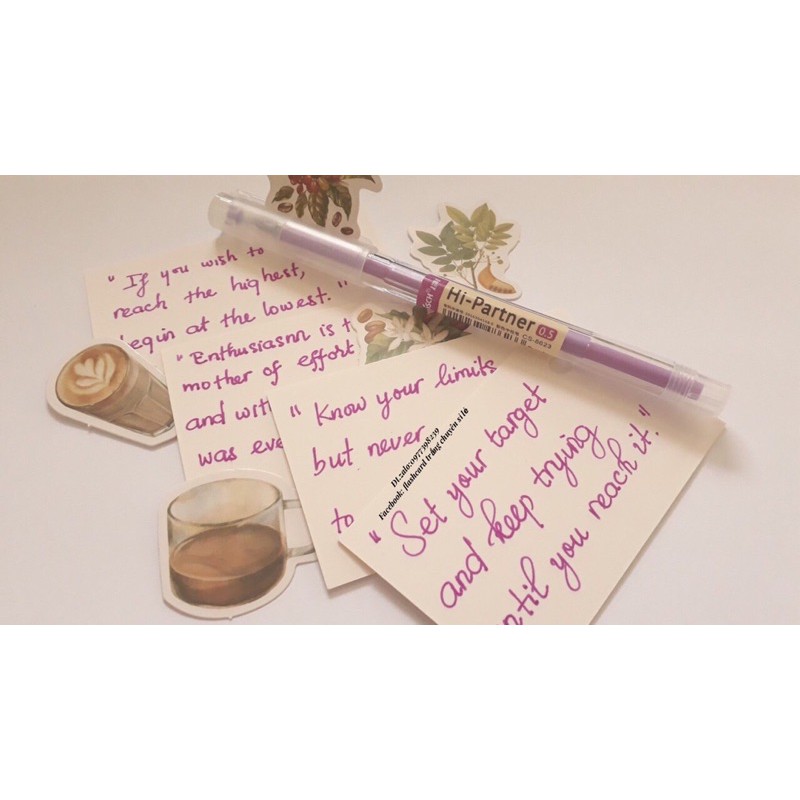 " If you wish to
reach the highest,
begin at the lowest. "
" Enthusiasm is t
mother of effort
and with
was eve
" Know your limits
but never
to
" Set your target
and keep trying
ntil you reach it. "
Hi-Partner 0.5
CS-8623
DT:zalo:0977398239
Facebook: flashcard trắng chuyên sỉ lẻ